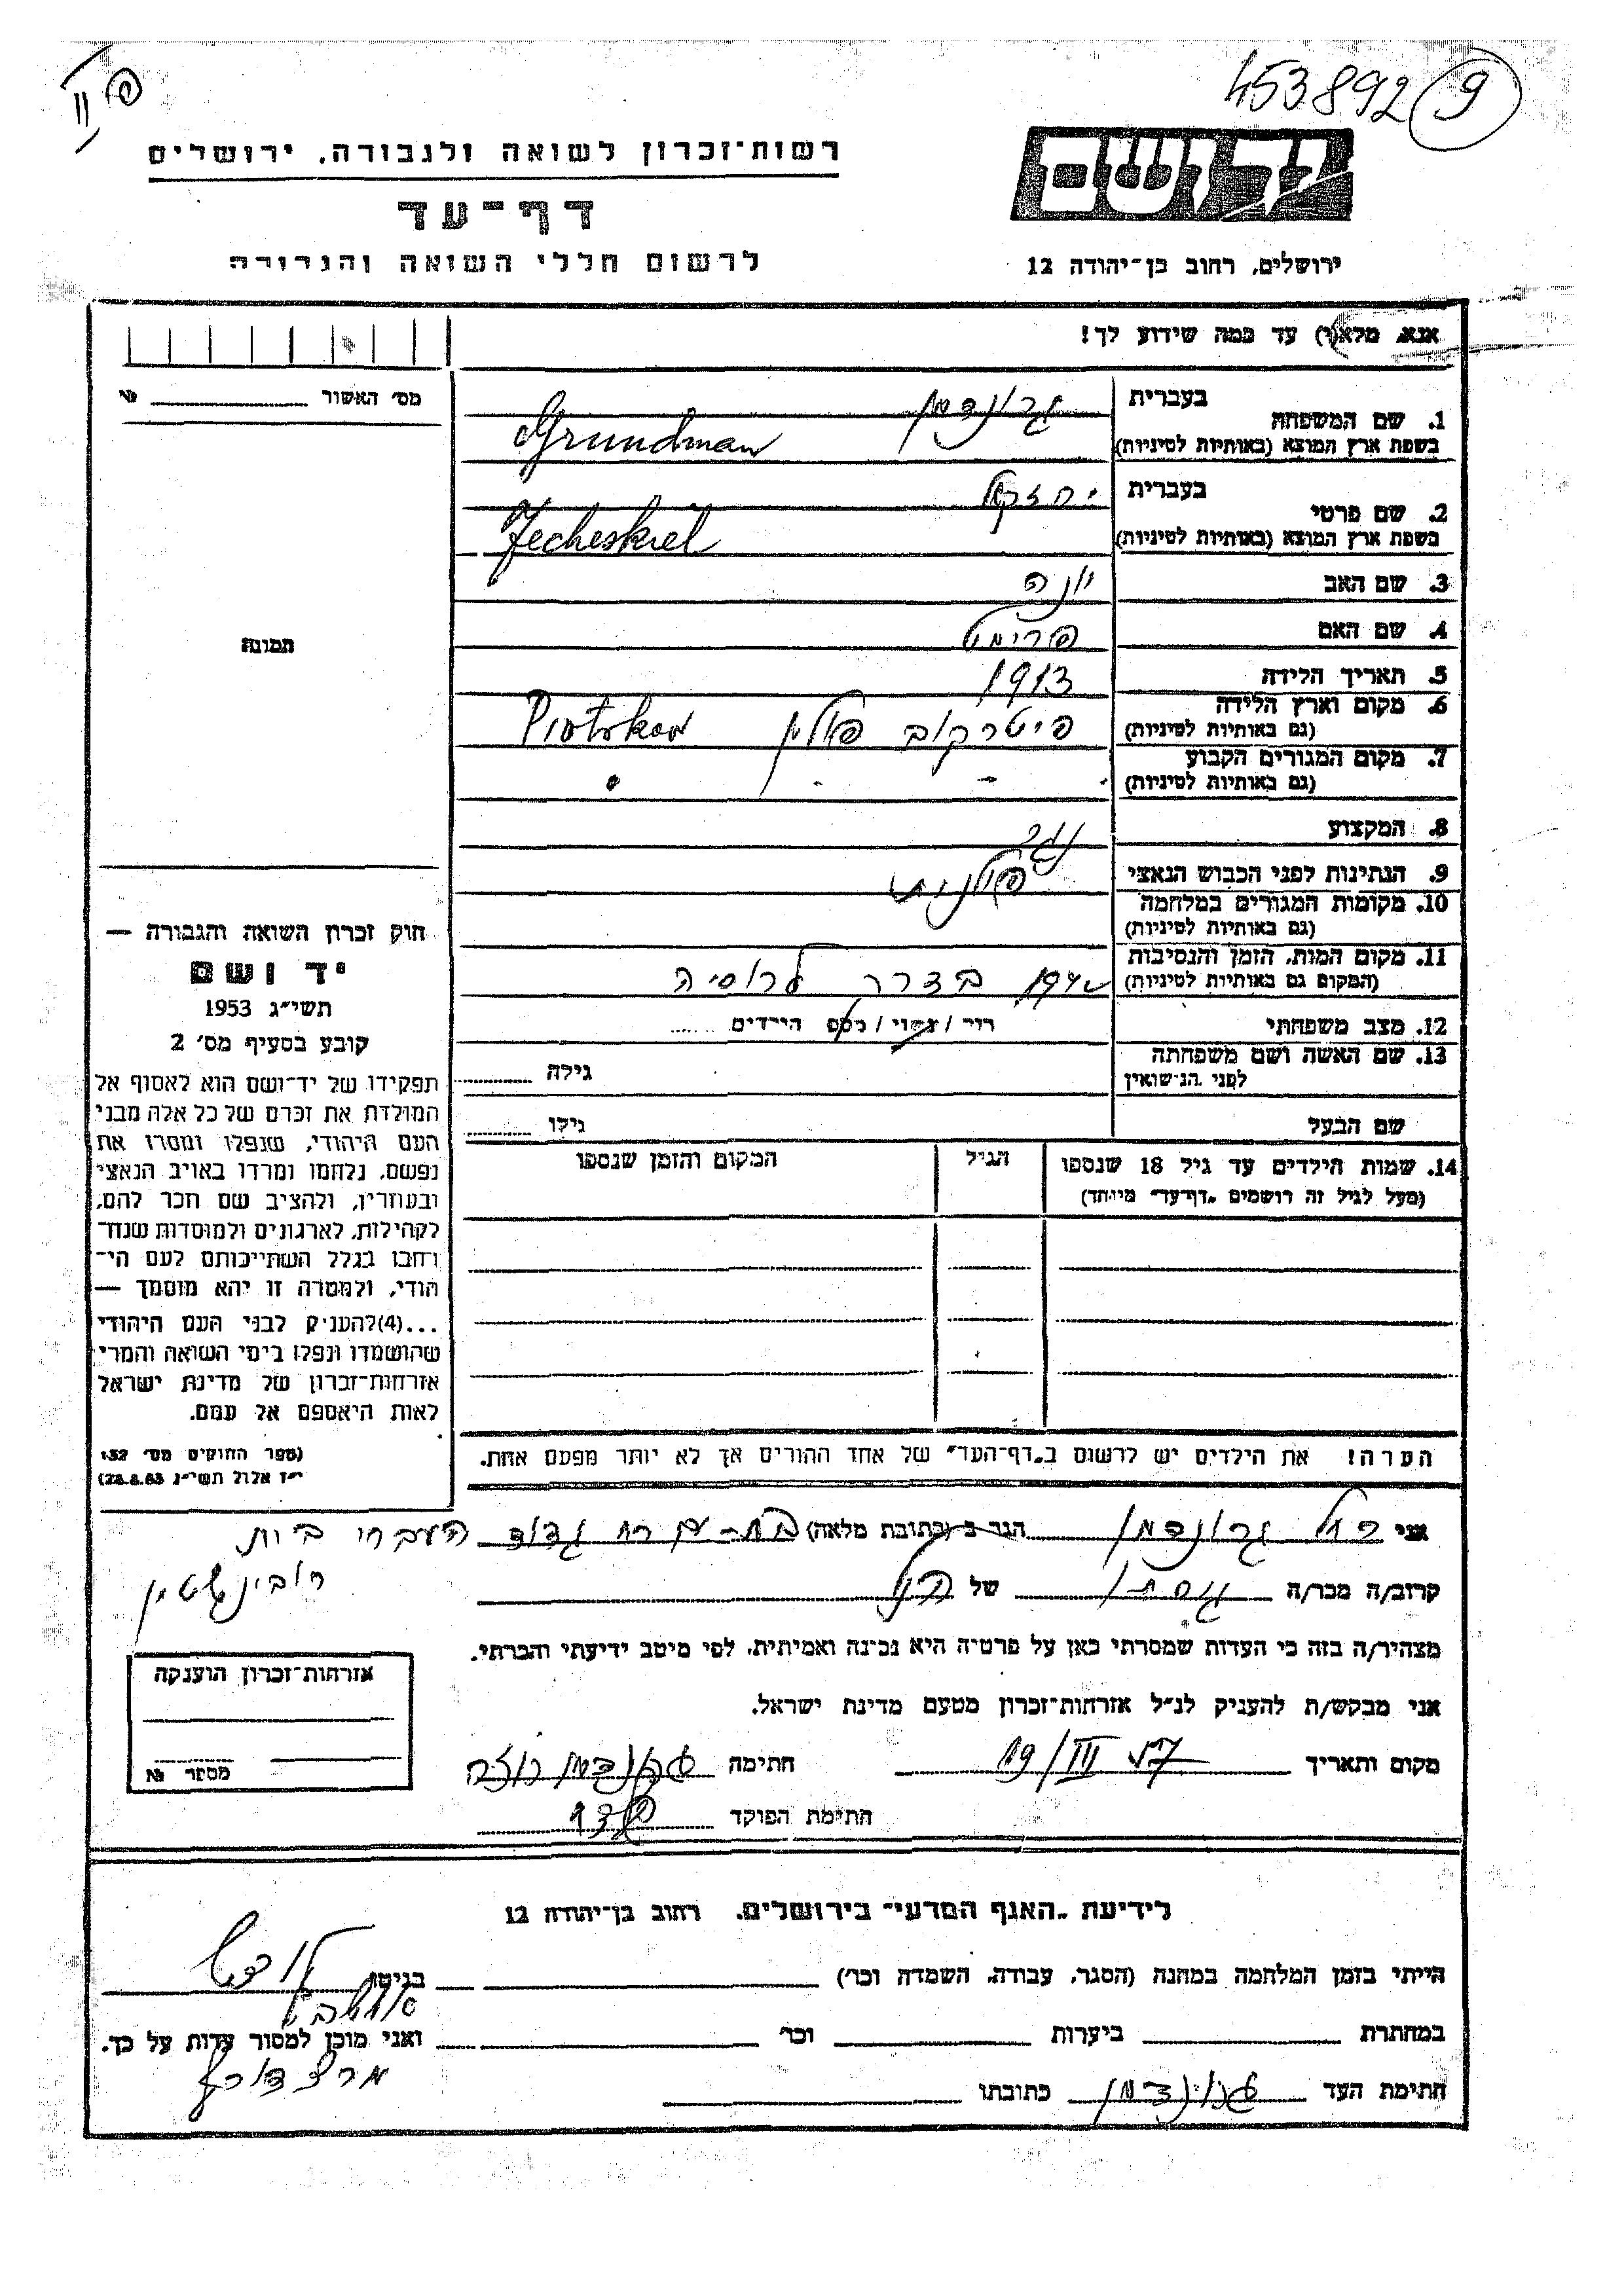 453892 9
פ
II
רשות־זכרון לשואה ולגבורה, ירושלים
דף־עד
לרשום חללי השואה והגבורה
יד ושם
ירושלים, רחוב בן־יהודה 12
אנא, מלא(י) עד כמה שידוע לך!
מס׳ האשור №
1. שם המשפחה בעברית גרונדמן
בשפת ארץ המוצא (באותיות לטיניות) Grundman
2. שם פרטי בעברית יחזקאל
בשפת ארץ המוצא (באותיות לטיניות) Jecheskiel
3. שם האב יונה
4. שם האם פרימט
5. תאריך הלידה 1913
6. מקום וארץ הלידה
(גם באותיות לטיניות) פיטרקוב פולין Piotrkow
7. מקום המגורים הקבוע
(גם באותיות לטיניות)
8. המקצוע נגר
9. הנתינות לפני הכבוש הנאצי פולנית
10. מקומות המגורים במלחמה
(גם באותיות לטיניות)
11. מקום המות, הזמן והנסיבות
(המקום גם באותיות לטיניות) בדרך לרוסיה
12. מצב משפחתי רוק / נשוי / מספר הילדים
13. שם האשה ושם משפחתה
לפני הנישואין גילה
שם הבעל גילו
14. שמות הילדים עד גיל 18 שנספו הגיל המקום והזמן שנספו
(מעל לגיל זה רושמים „דף־עד״ מיוחד)
הערה! את הילדים יש לרשום ב„דף־העד״ של אחד ההורים אך לא יותר מפעם אחת.
תמונה
חוק זכרון השואה והגבורה —
יד ושם
תשי״ג 1953
קובע בסעיף מס׳ 2
תפקידו של יד־ושם הוא לאסוף אל
המולדת את זכרם של כל אלה מבני
העם היהודי, שנפלו ומסרו את
נפשם, נלחמו ומרדו באויב הנאצי
ובעוזריו, ולהציב שם וזכר להם,
לקהילות, לארגונים ולמוסדות שנח־
רבו בגלל השתייכותם לעם הי־
הודי, ולמטרה זו יהא מוסמך —
...(4)להעניק לבני העם היהודי
שהושמדו ונפלו בימי השואה והמרי
אזרחות־זכרון של מדינת ישראל
לאות היאספם אל עמם.
(ספר החוקים מס׳ 132
י״ז אלול תשי״ג 28.8.53)
אני גרונדמן הגר ב (כתובת מלאה) בת־ים רח גדוד העברי בית
רובינשטיין
קרוב/ה מכר/ה גיסתו של הנ״ל
מצהיר/ה בזה כי העדות שמסרתי כאן על פרטיה היא נכונה ואמיתית, לפי מיטב ידיעתי והכרתי.
אני מבקש/ת להעניק לנ״ל אזרחות־זכרון מטעם מדינת ישראל.
מקום ותאריך 19/III חתימה גרונדמן רוזה
חתימת הפוקד
אזרחות־זכרון הוענקה
מספר №
לידיעת „האגף המדעי״ בירושלים, רחוב בן־יהודה 12
הייתי בזמן המלחמה במחנה (הסגר, עבודה, השמדה וכו׳) בגיטו לודז׳
במחתרת ביערות וכו׳ ואני מוכן למסור עדות על כך.
חתימת העד גרונדמן כתובתו